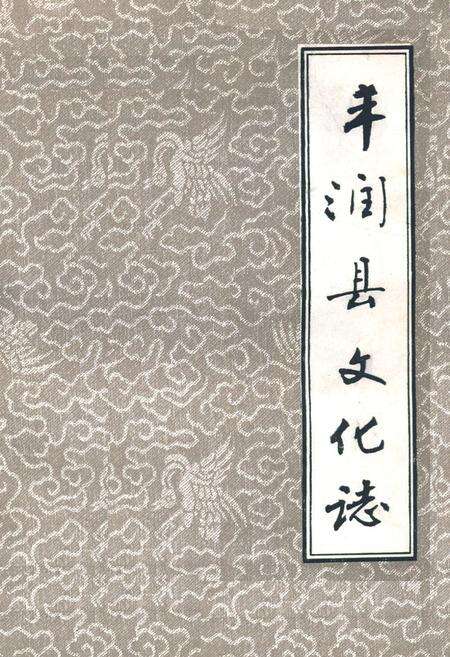 丰润县文化誌